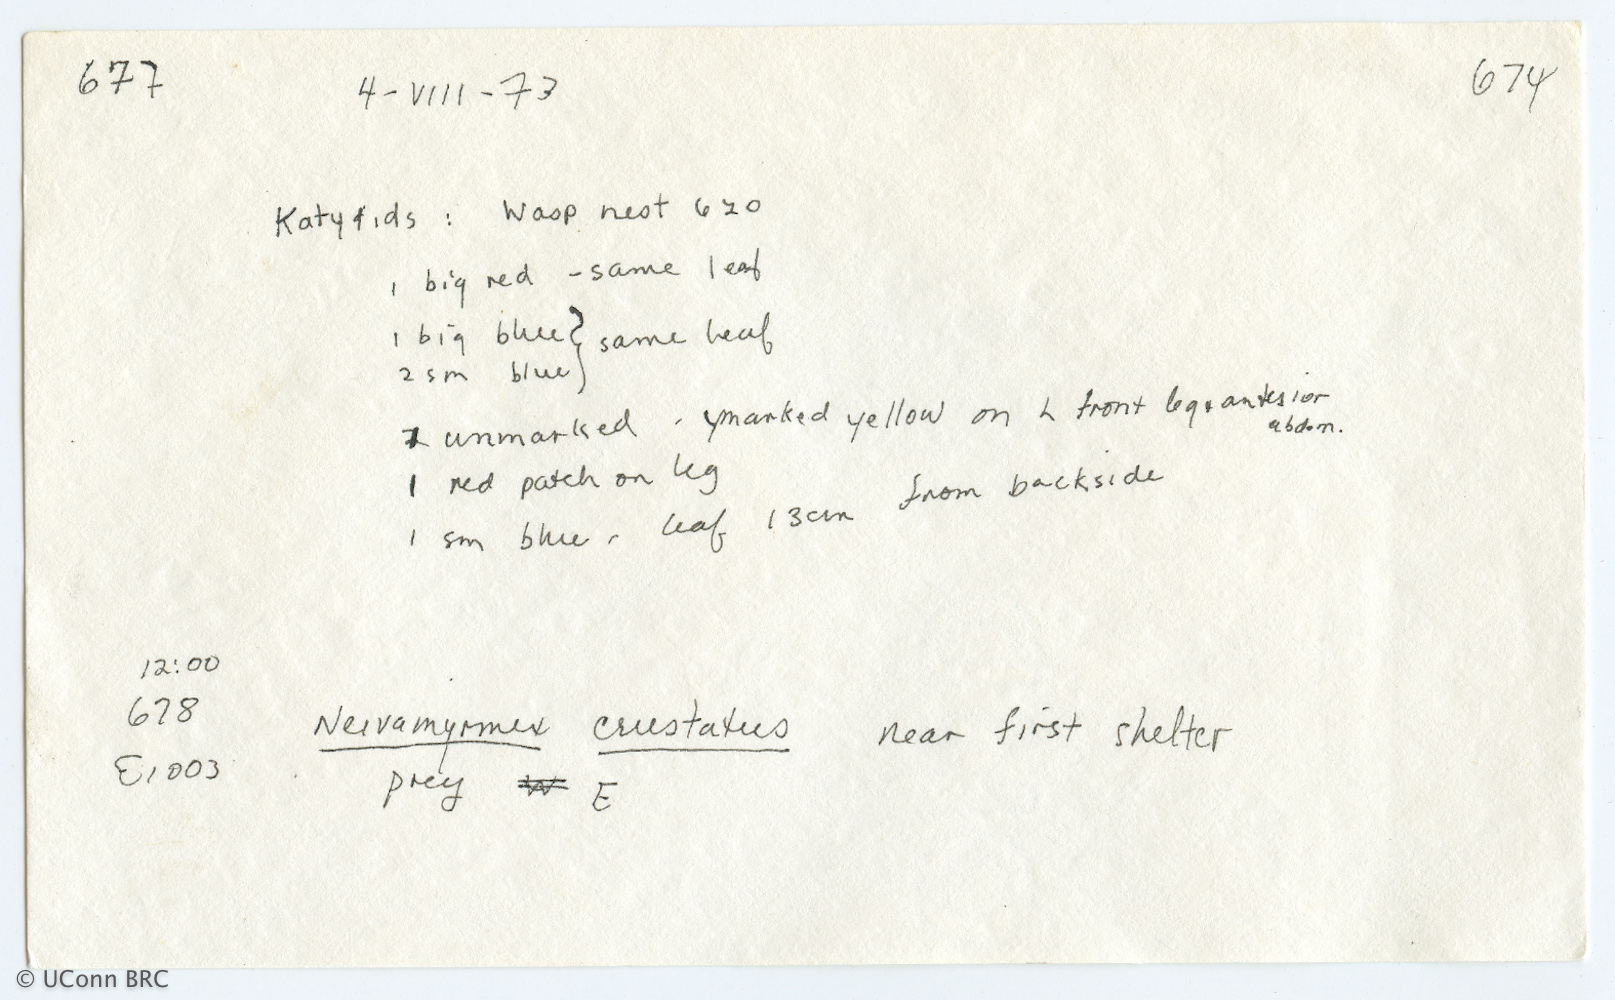 677 4-VIII-73 674
Katydids : Wasp nest 620
1 big red - same leaf
1 big blue } same leaf
2 sm blue
unmarked - marked yellow on L front leg + anterior
abdom.
1 red patch on leg
1 sm blue - leaf 13cm from backside
12:00
678 Neivamyrmex crustatus near first shelter
E1003 prey E
© UConn BRC